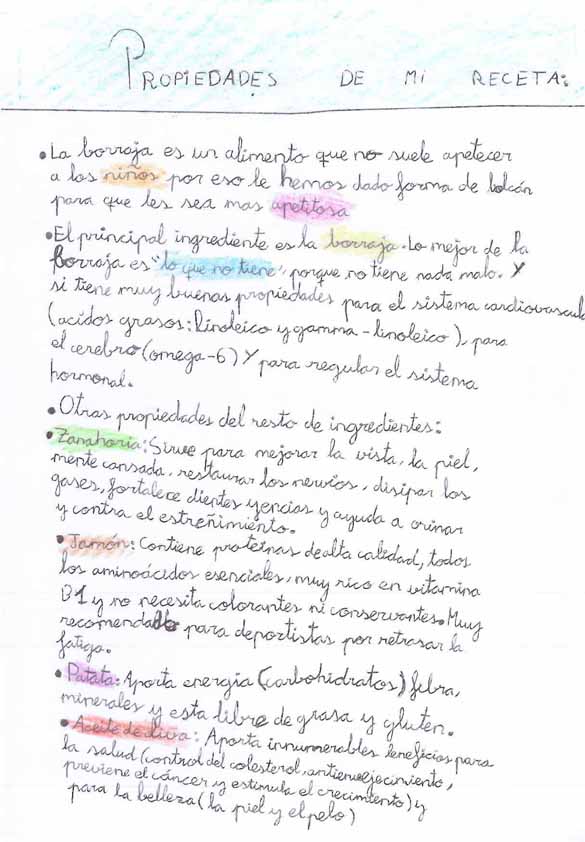 PROPIEDADES DE MI RECETA:
• La borraja es un alimento que no suele apetecer
a los niños por eso le hemos dado forma de bolcán
para que les sea mas apetitosa
• El principal ingrediente es la borraja. Lo mejor de la
borraja es "lo que no tiene", porque no tiene nada malo. Y
si tiene muy buenas propiedades para el sistema cardiovascul
(acidos grasos: linoleico y gamma-linoleico), para
el cerebro (omega-6) Y para regular el sistema
hormonal.
• Otras propiedades del resto de ingredientes:
• Zanahoria: Sirve para mejorar la vista, la piel,
mente cansada, restaurar los nervios, disipar los
gases, fortalece dientes y encias y ayuda a orinar
y contra el estreñimiento.
• Jamón: Contiene proteinas de alta calidad, todos
los aminoácidos esenciales, muy rico en vitamina
B1 y no necesita colorantes ni conservantes. Muy
recomendable para deportistas por retrasar la
fatiga.
• Patata: Aporta energia (carbohidratos) fibra,
minerales y esta libre de grasa y gluten.
• Aceite de oliva: Aporta innumerables beneficios para
la salud (control del colesterol, antienvejecimiento,
previene el cáncer y estimula el crecimiento) y
para la belleza (la piel y el pelo)